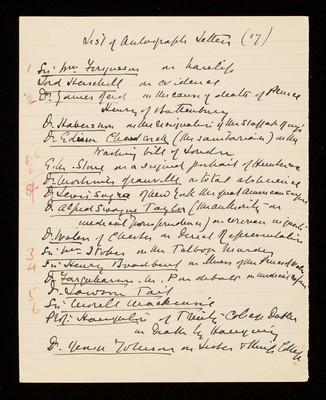 List of Autograph Letters (27)
1 Sir Wm Fergusson on harelip
Lord Herschell on evidence
2 Dr James Reid on the cause of death of Prince
Henry of Battenberg
Dr Habershon on the resignation of the staff at Guy's
Dr Edwin Chadwick (the sanitarian) on the
Washing bill of London
on a signed portrait of
Dr Mortimer Granville on total abstinence
Dr Lewis Sayre of New York the great American Surgeon
Dr Alfred Swayne Taylor (the authority on
medical jurisprudence) on
Dr Waters of Chester on Direct Representation
3 Sir Wm Stokes on the Talbot Murder
4 Sir Henry Broadbent on illness of the Prince of Wales
Dr Farquharson M.P. on debate on medical
5 Dr Lawson Tait
6 Sir Morell Mackenzie
Prof: Haughton of Trinity College Dublin
on Death by Hanging
Dr Johnson on